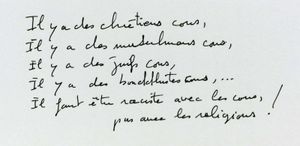 Il y a des chrétiens cons,
Il y a des musulmans cons,
Il y a des juifs cons,
Il y a des bouddhistes cons, ...
Il faut être raciste avec les cons,
pas avec les religions !